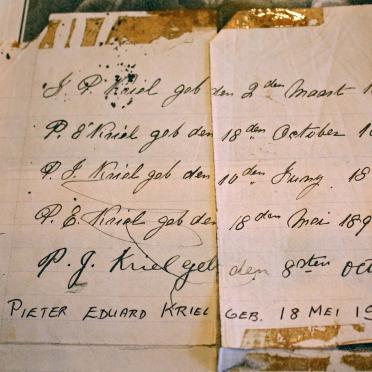 J. P. Kriel geb den 2den Maart 1
P. E Kriel geb den 18den October 18
P. J. Kriel geb den 10den Juny. 18
P. E. Kriel geb den 18den Mei 189
P. J. Kriel geb den 8sten Oct
PIETER EDUARD KRIEL GEB. 18 MEI 19